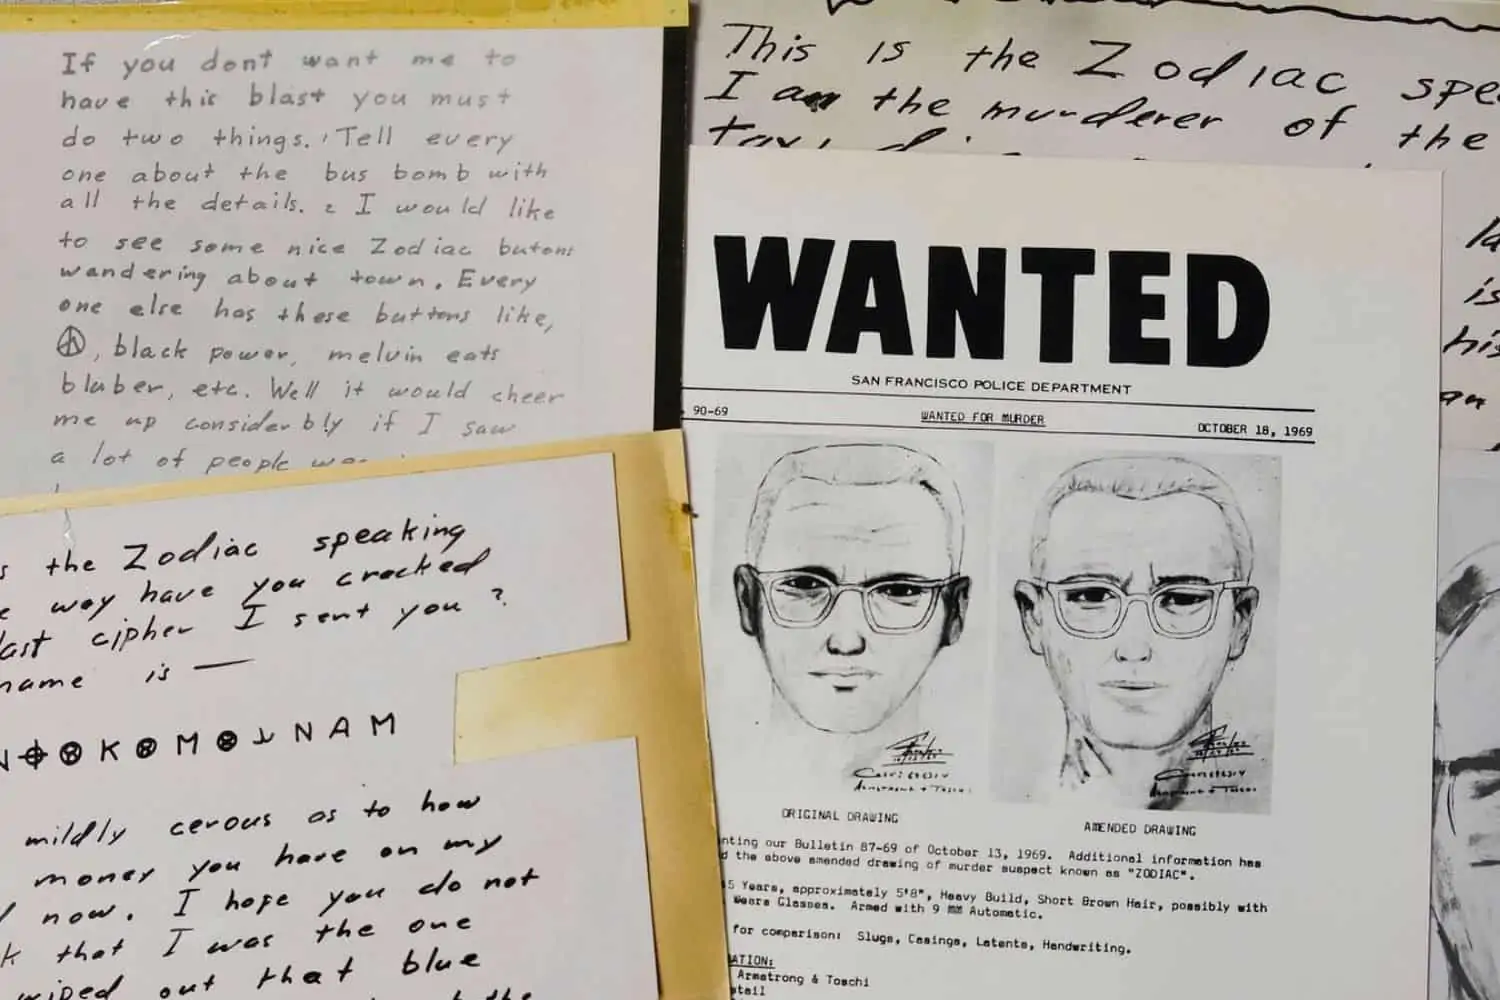 If you dont want me to
have this blast you must
do two things. 1 Tell every
one about the bus bomb with
all the details. 2 I would like
to see some nice Zodiac butons
wandering about town. Every
one else has these buttons like,
☮, black power, melvin eats
bluber, etc. Well it would cheer
me up considerbly if I saw
a lot of people
the Zodiac speaking
way have you cracked
last cipher I sent you ?
name is —
N⌖⊗K⊗M⊗⅄NAM
mildly cerous as to how
money you have on my
now. I hope you do not
that I was the one
wiped out that blue
the
This is the Zodiac
I am the murderer of the
WANTED
SAN FRANCISCO POLICE DEPARTMENT
90-69 WANTED FOR MURDER OCTOBER 18, 1969
ORIGINAL DRAWING AMENDED DRAWING
our Bulletin 87-69 of October 13, 1969. Additional information has
the above amended drawing of murder suspect known as "ZODIAC".
5 Years, approximately 5'8", Heavy Build, Short Brown Hair, possibly with
Wears Glasses. Armed with 9 MM Automatic.
for comparison: Slugs, Casings, Latents, Handwriting.
ATION:
Armstrong & Toschi
is
his